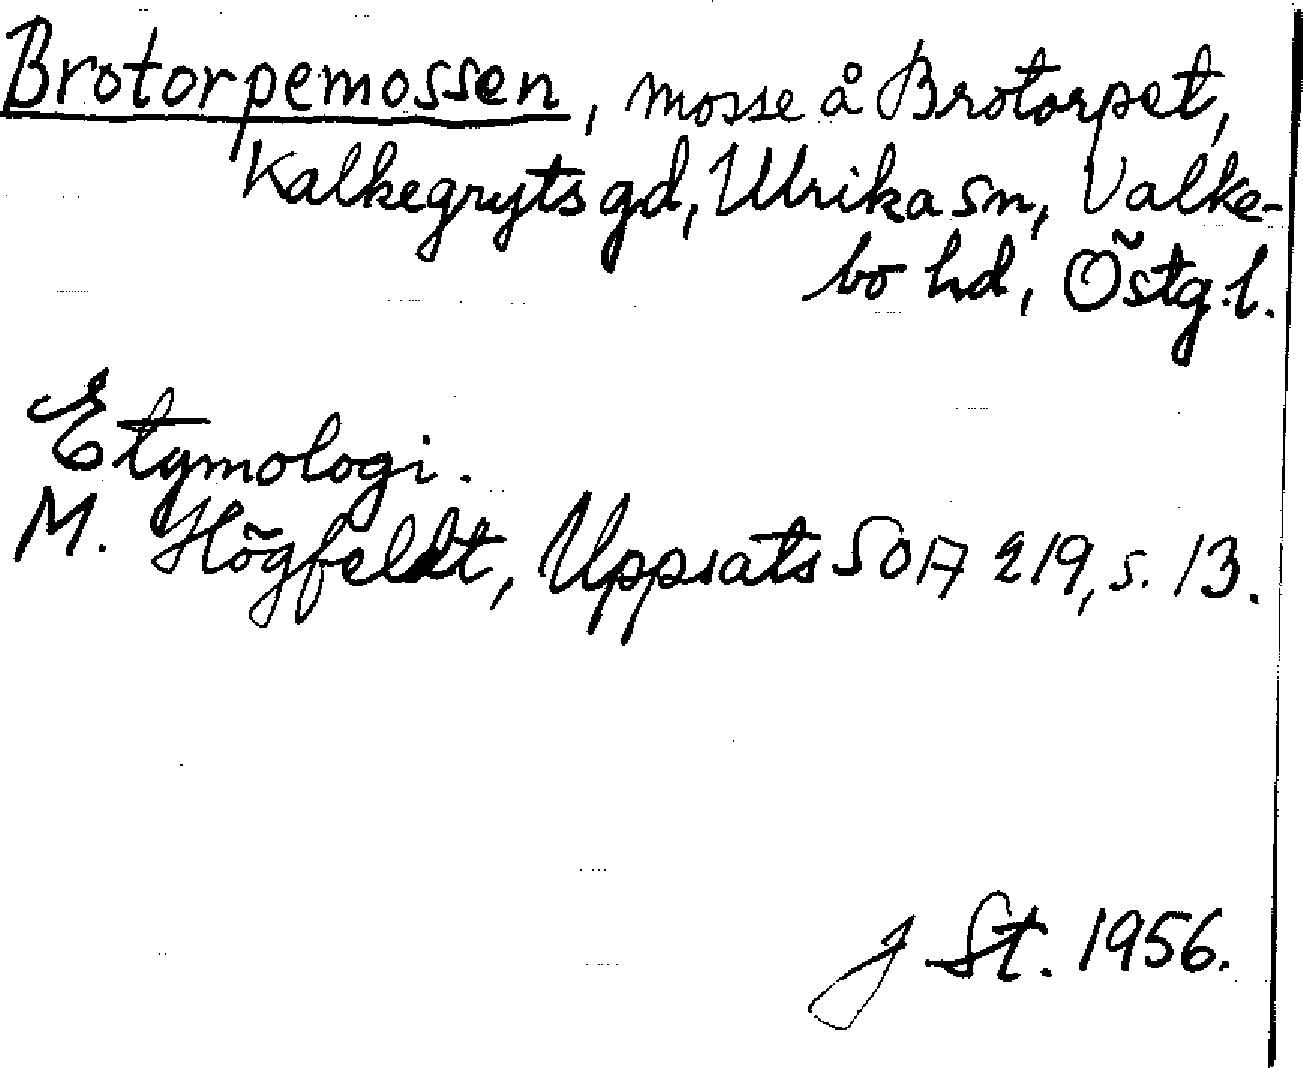 Brotorpemossen, mosse å Brotorpet,
Kalkegryts gd, Ulrika sn, Valke-
bo hd, Östg.l.
Etymologi.
M. Högfeldt, Uppsats SOA 219, s. 13.
J St. 1956.